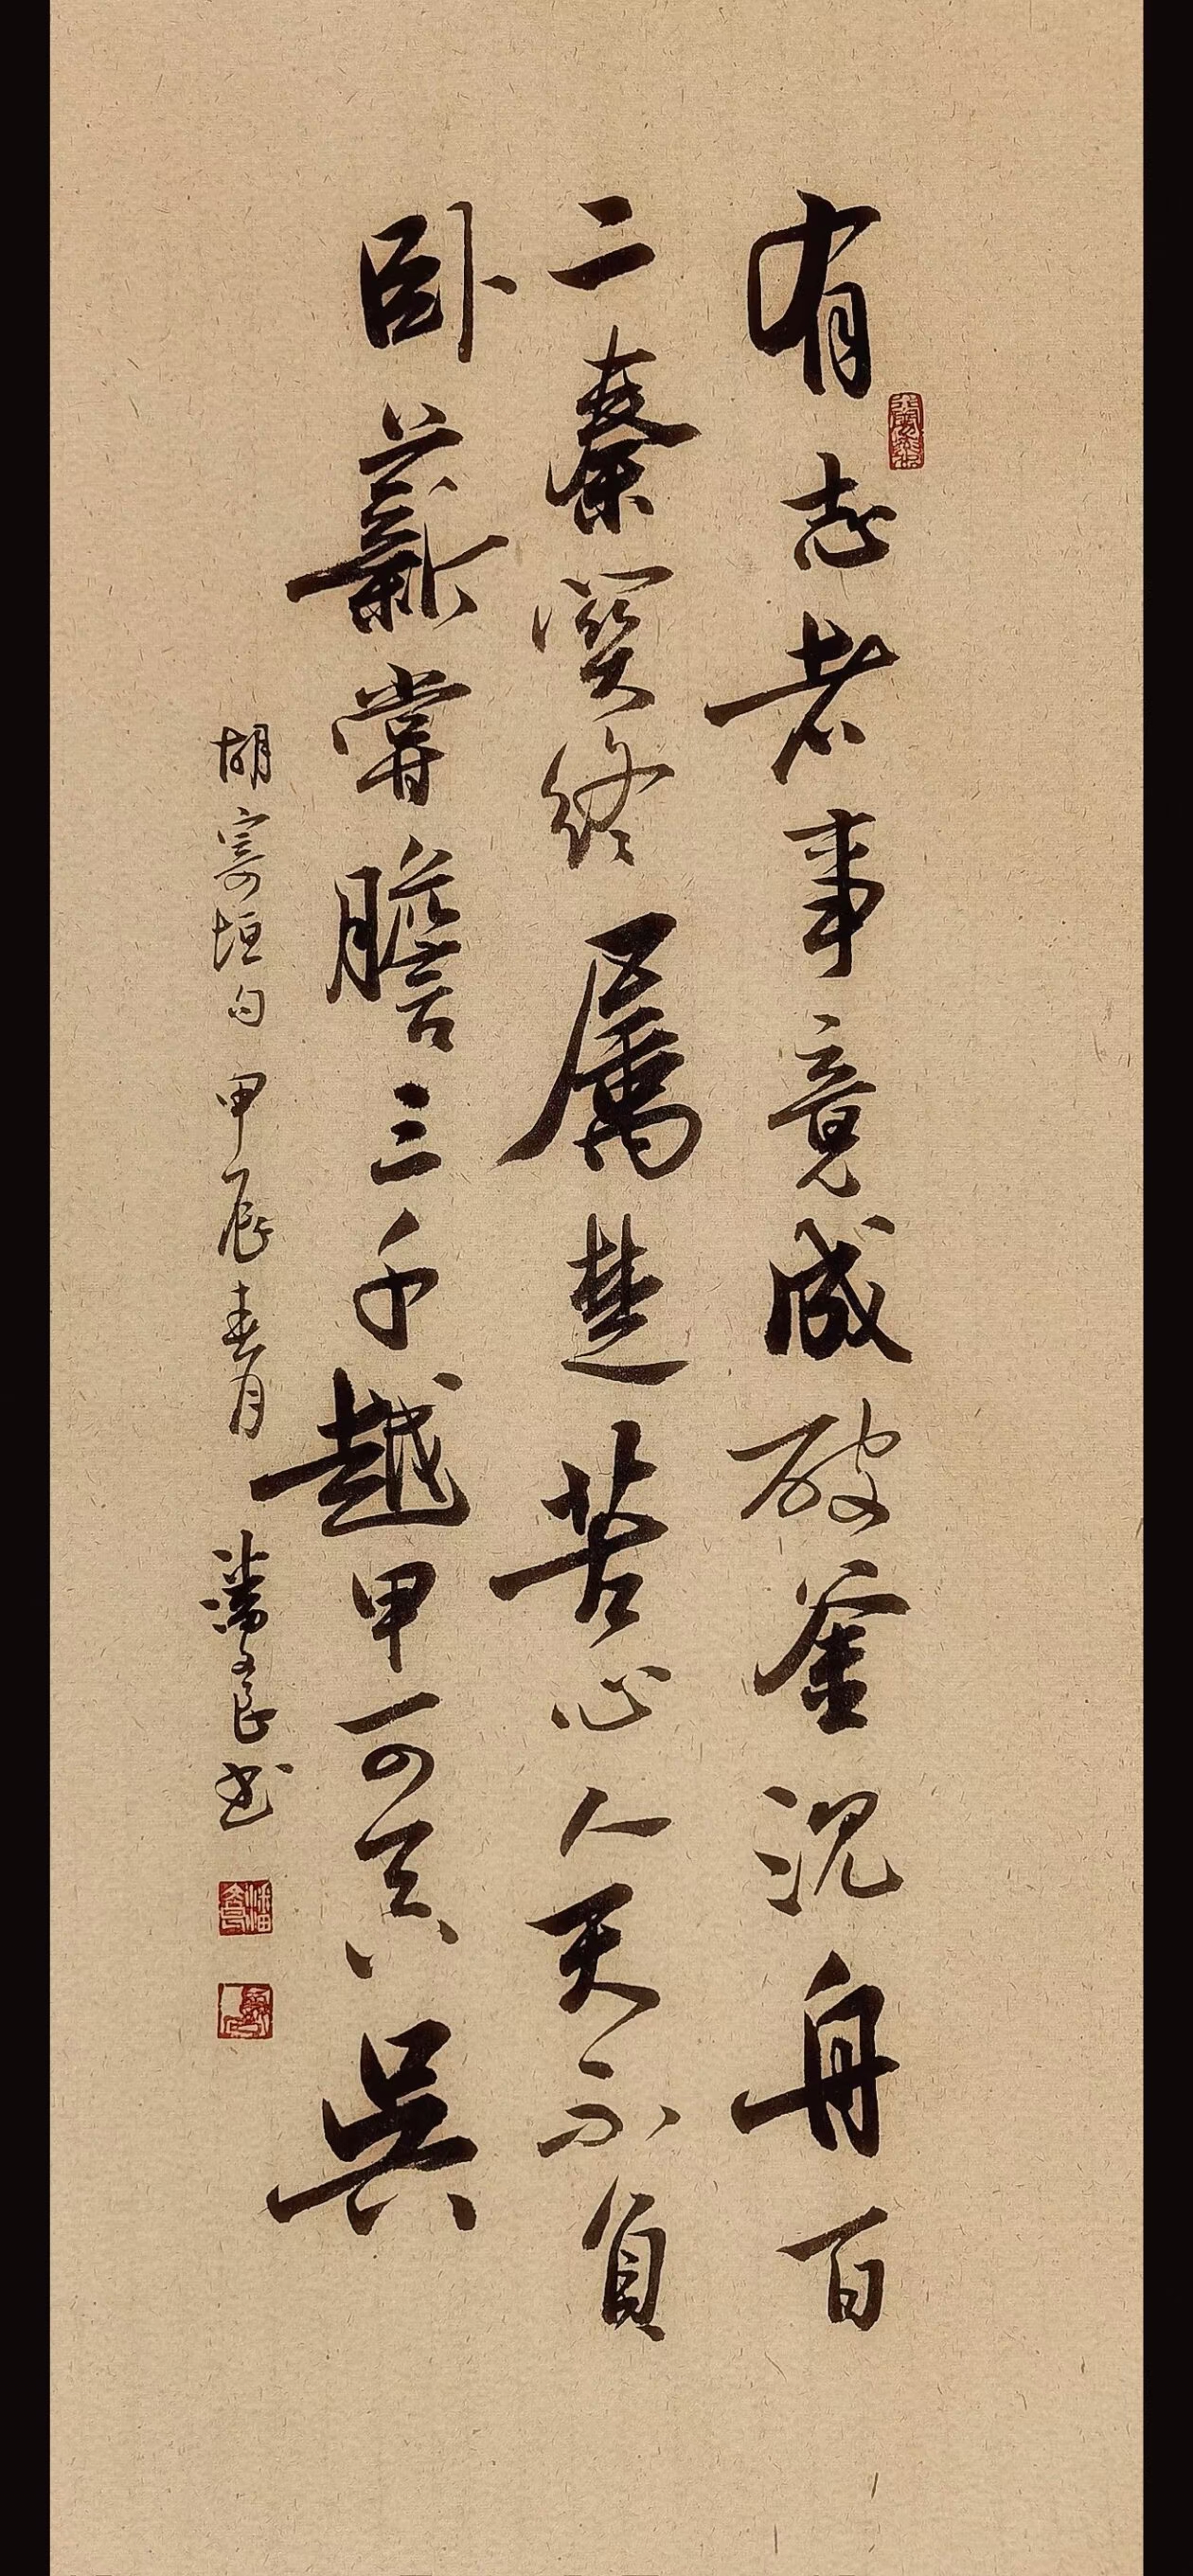 有志者事竟成破釜沉舟百
二秦关终属楚苦心人天不负
卧薪尝胆三千越甲可吞吴
胡寄垣句 甲辰春月 潘文良书